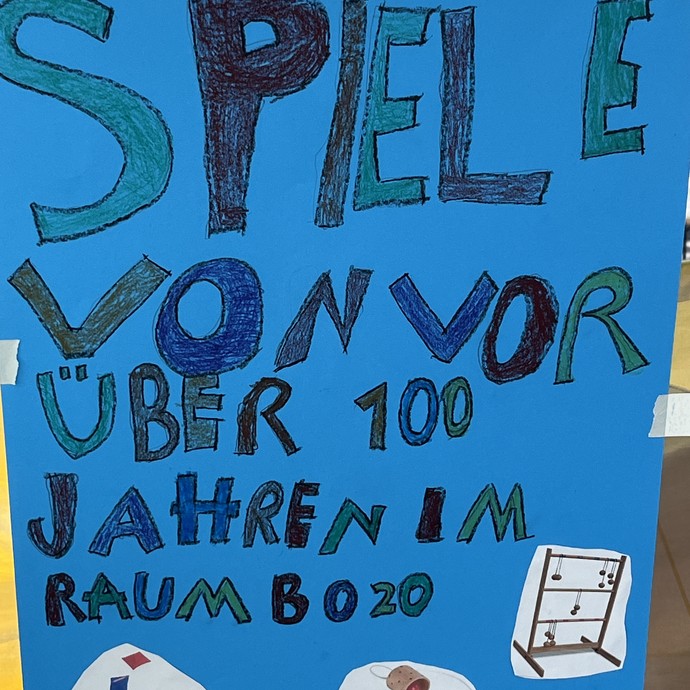 SPIELE
VON VOR
ÜBER 100
JAHREN IM
RAUM B020